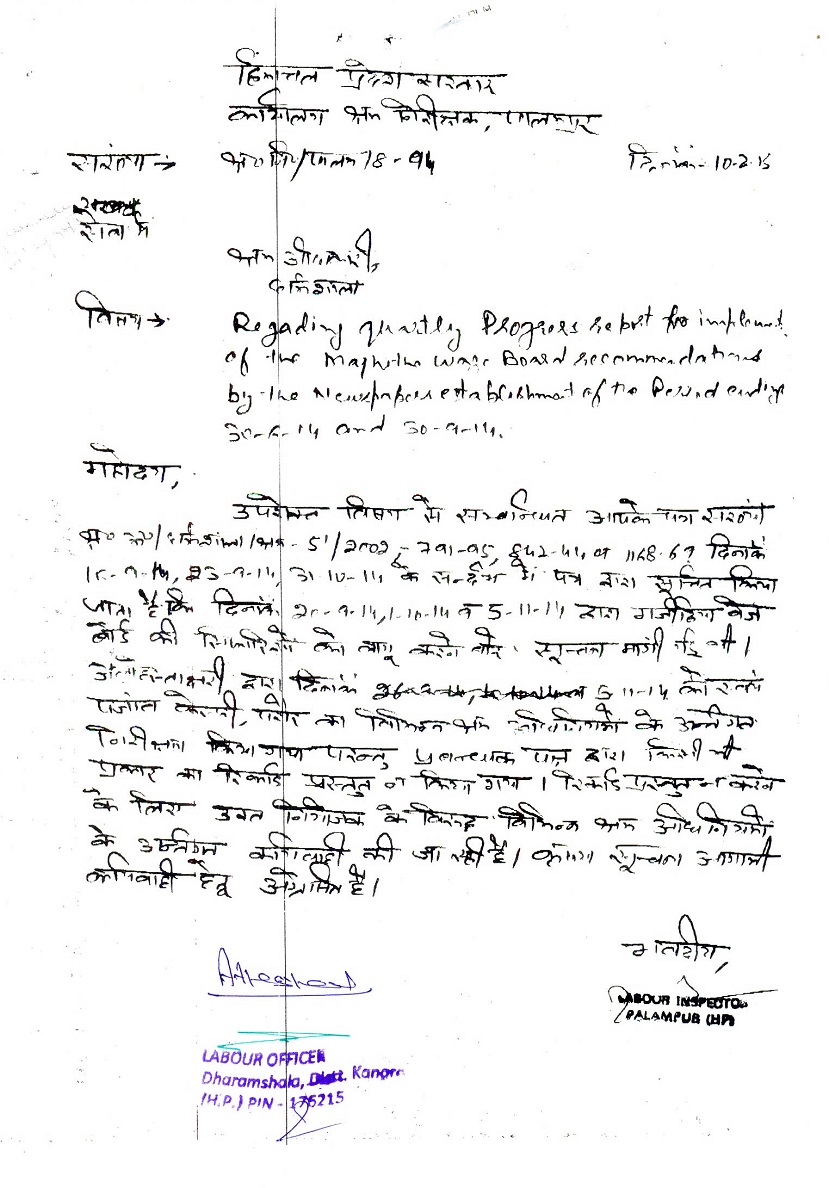 हिमाचल प्रदेश सरकार
कार्यालय श्रम निरीक्षक, पालमपुर
दिनांक- 10-2-15
सेवा में
श्रम अधिकारी,
धर्मशाला
विषय→ Regading quartly Progress report for implement
of the Majithia wage Board recommendations
by the Newspapers establishment of the Period ending
30-6-14 and 30-9-14.
महोदय,
उपरोक्त विषय से सम्बन्धित आपके पत्र संख्या
31-10-14 के सन्दर्भ में पत्र द्वारा सूचित किया
जाता है कि दिनांक 20-9-14, 1-10-14 व 5-11-14 द्वारा मजीठिया वेज
बोर्ड की सिफारिशों को लागू करने बारे सूचना मांगी गई थी।
अधोहस्ताक्षरी द्वारा दिनांक 5-11-14 को स्वयं
पंजाब केसरी, का विभिन्न श्रम अधिनियमों के अर्न्तगत
निरीक्षण किया गया परन्तु प्रबन्धक पक्ष द्वारा किसी भी
प्रकार का रिकार्ड प्रस्तुत न किया गया। रिकार्ड प्रस्तुत न करने
के लिए उक्त नियोजक के विरूद्ध विभिन्न श्रम अधिनियमों
के अर्न्तगत कार्यवाही की जा रही है। कृपया सूचना आगामी
कार्यवाही हेतू प्रेषित है।
भवदीय,
LABOUR INSPECTOR
PALAMPUR (HP)
Attested
LABOUR OFFICER
Dharamshala, Distt. Kangra
(H.P.) PIN - 176215